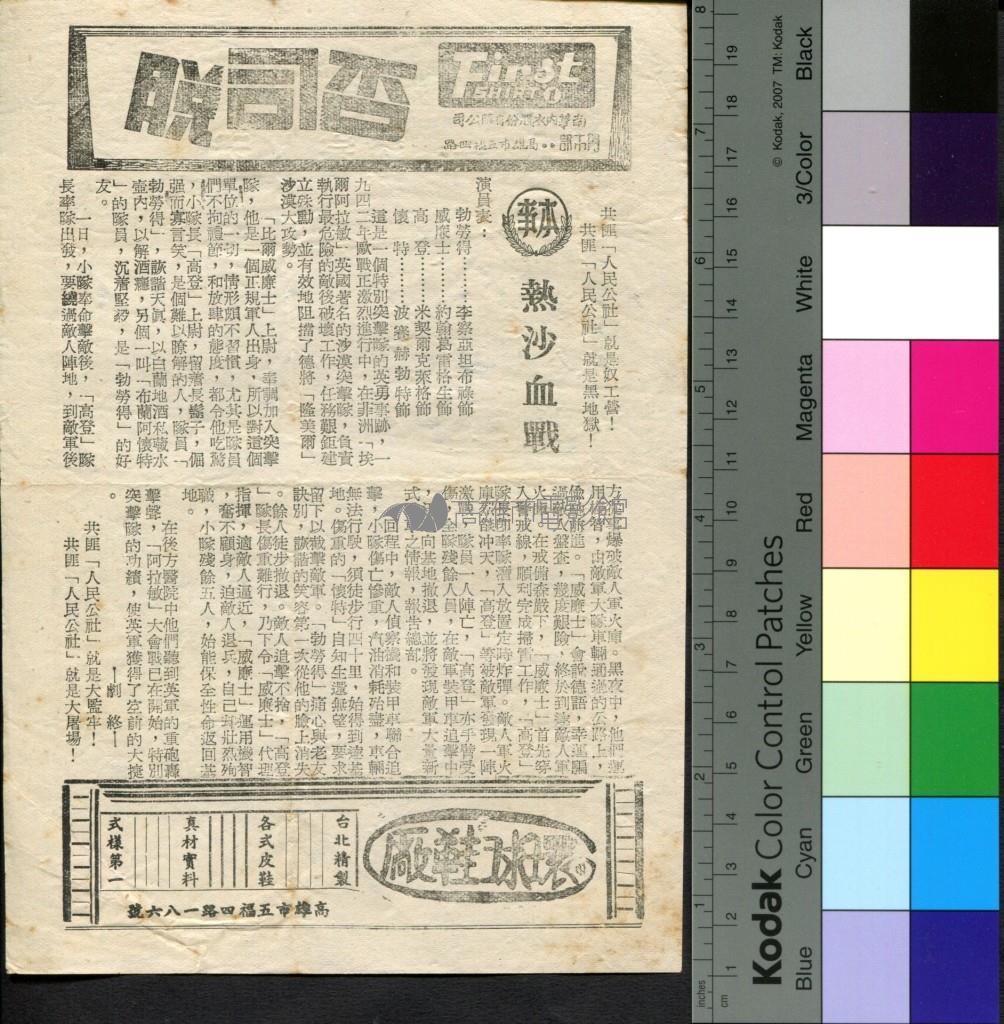 否司脫
Finet
SHIRTO
共匪「人民公社」就是奴工營！
共匪「人民公社」就是黑地獄！
本事
熱沙血戰
演員表：
勃勞得………李察亞坦布祿飾
威廉士………約翰葛雷格生飾
高　登………米契爾克萊格飾
懷　特………波賽赫勃特飾
這是一個特別突擊隊的英勇事跡，一
九四二年歐戰正激烈進行中，在非洲「埃
爾阿拉敏」英國著名的沙漠突擊隊，負責
執行最危險的敵後破壞工作，任務艱鉅建
立殊勳，並有效地阻擋了德將「隆美爾」
沙漠大攻勢。
「比爾威廉士」上尉，奉調加入突擊
隊，他是一個正規軍人出身，所以對這個
單位的一切，情形頗不習慣，尤其是隊員
們不拘禮節，和放肆的態度，都令他吃驚
，小隊長「高登」上尉，留着長鬍子，倔
强而寡言笑，是個難以瞭解的人，隊員「
勃勞得」，詼諧天眞，以白蘭地酒私藏水
壺內，以解酒癮，另個一叫「布蘭阿懷特
」的隊員，沉着堅毅，是「勃勞得」的好
友。
一日，小隊奉命擊敵後，「高登」隊
長率隊出發，要繞過敵人陣地，到敵軍後
方去爆破敵人軍火庫。黑夜中，他們運
用機智，由敵軍大隊車輛通過的公路上，
偷偷新進。「威廉士」會說德語，幸運騙
過敵人盤查，幾度艱險，終於到達敵人軍
火庫，在戒備森嚴下，「威廉士」首先穿
入警戒線，順利完成掃雷工作，「高登」
隊長卽率隊潛入放置定時炸彈。敵人軍火
庫火燄冲天，「高登」等被敵軍發現一陣
激戰，隊員一人陣亡，「高登」亦手臂受
傷，全隊殘餘人員，在敵軍裝甲車追擊中
，向基地撤退，並將發現敵軍大量新
式戰車之情報，報告總部。
回程中，敵人偵察機和裝甲車聯合追
擊，小隊傷亡慘重，汽油消耗殆盡，車輛
無法行駛，須徒步行四十里，始得到達基
地。傷重的「懷特」自知生還無望，要求
留下以截擊敵軍。「勃勞得」痛心與老友
訣別，詼諧的笑容第一次從他的臉上消失
。餘人徒步撤退。敵人追擊不捨，「高登
」隊長傷重難行，乃下令「威廉士」代理
指揮，適敵人逼近，「威廉士」運用機智
，奮不顧身，迫敵人退兵，自己却壯烈殉
職，小隊殘餘五人，始能保全性命返回基
地。
在後方醫院中他們聽到英軍的重砲轟
擊聲，「阿拉敏」大會戰已在開始，特別
突擊隊的功績，使英軍獲得了空前的大捷
。
——劇　終——
共匪「人民公社」就是大監牢！
共匪「人民公社」就是大屠場！
環球鞋廠
台北精製
各式皮鞋
真材實料
式樣第一
高雄市五福四路一八六號
Kodak Color Control Patches
© Kodak, 2007 TM: Kodak
Blue Cyan Green Yellow Red Magenta White 3/Color Black
inches 1 2 3 4 5 6 7 8
cm 1 2 3 4 5 6 7 8 9 10 11 12 13 14 15 16 17 18 19